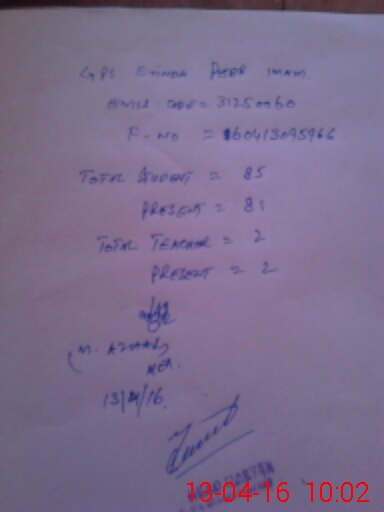 GPS Peer Imam
EMIS Code = 31250060
F-No = 160413095966
Total Student = 85
Present = 81
Total Teacher = 2
Present = 2
(M. AZHAR)
MEA.
13/4/16.
13-04-16 10:02